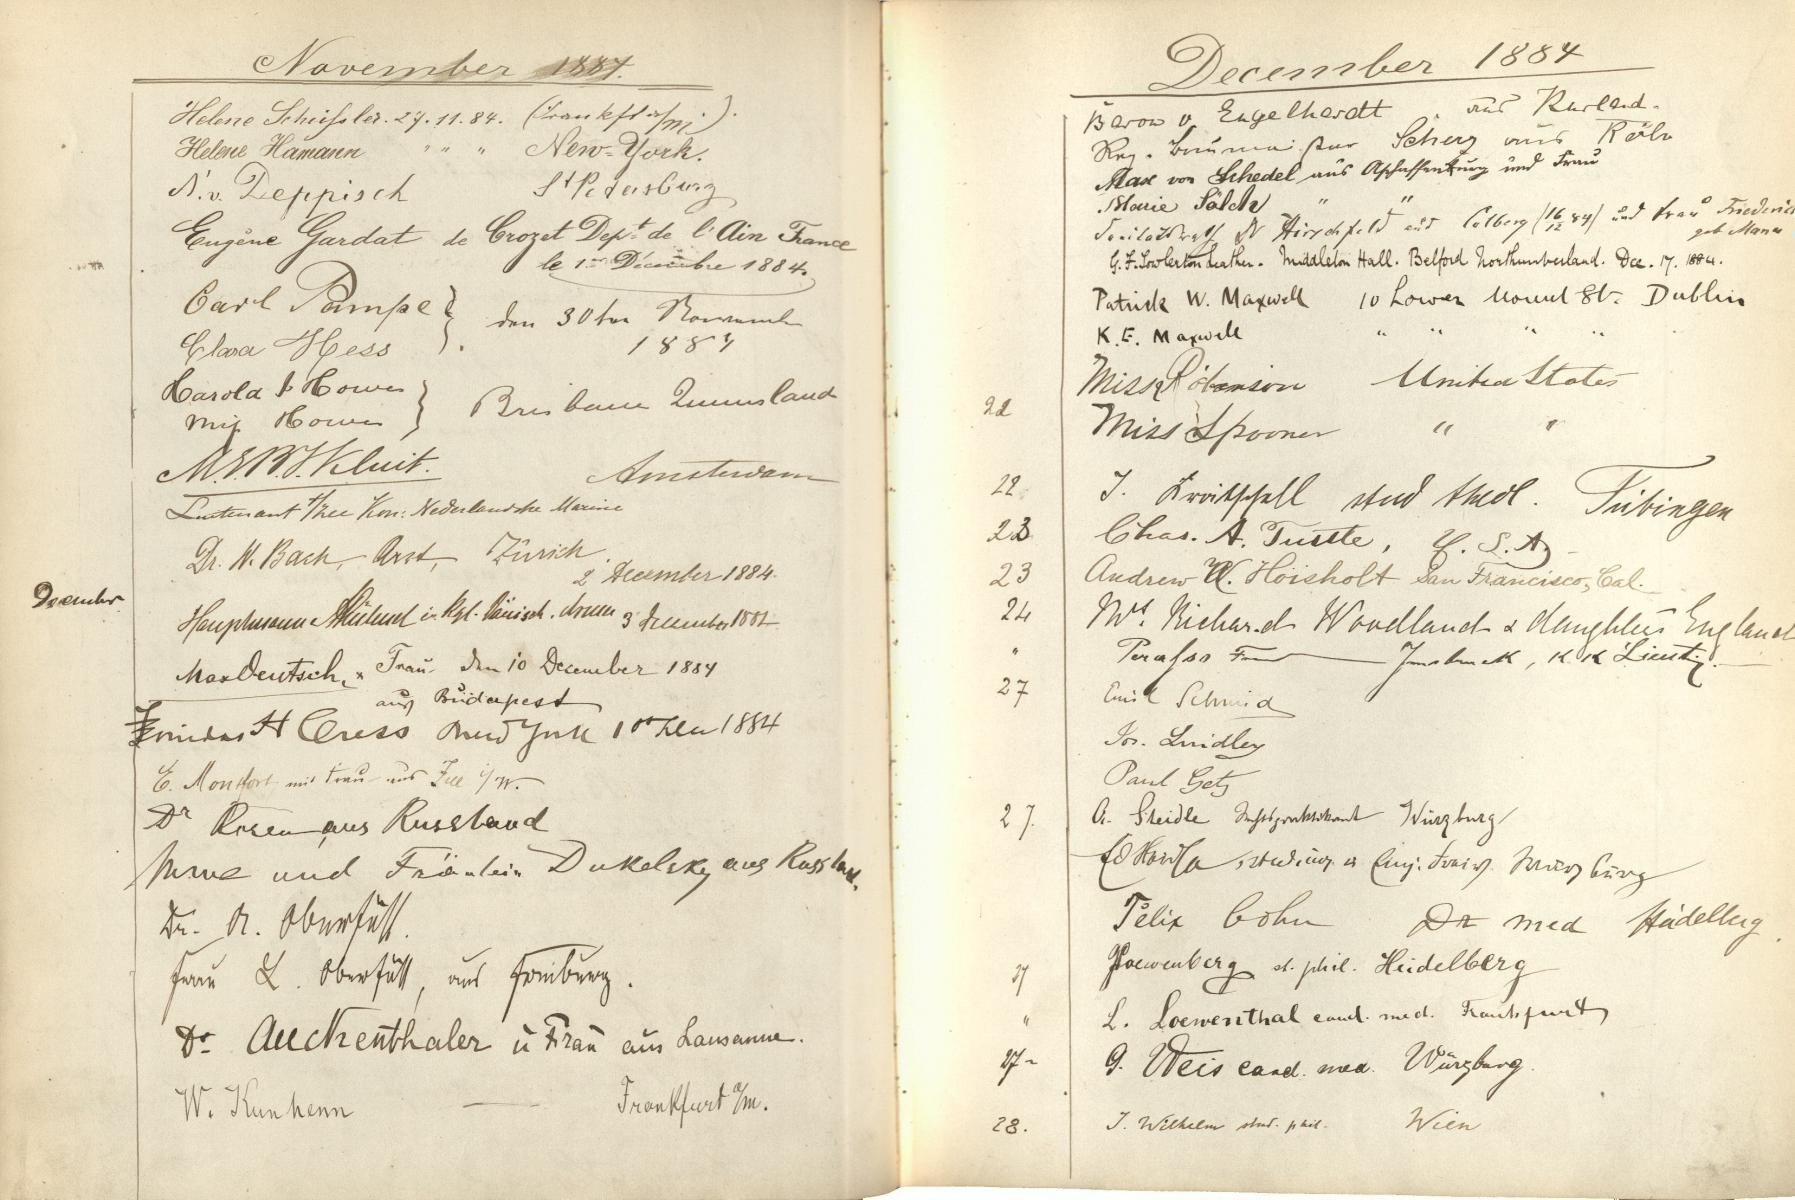 November 1884.
Helene Schissler. 27.11.84. (Frankft a/m).
Helene Hamann " " " New-York.
N. v. Deppisch St Petersburg
Eugène Gardat de Crozet Dept de l'Ain France
le 1er Décembre 1884.
Carl Pampe
den 30ten November
Clara Hess
1884
Harold Howes
Brisbane Queensland
Howes
Kluit. Amsterdam
Luitenant t/zee Kon: Nederlandsche Marine
Dr. H. Bach, Arzt, Zürich
2 December 1884.
December
Hauptmann 3 December 1884
Max Deutsch, & Frau den 10 December 1884
aus Budapest
H Cress New York 1884
E. Montfort mit Frau aus Zell i/W.
Dr Rosen aus Russland
Mme und Fräulein Dukelsky aus Russland.
Dr. A. Oberfüll.
Frau L. Oberfüll, aus Freiburg.
Dr Aucktenthaler u Frau aus Lausanne.
W. Kunhenn — Frankfurt a/m.
December 1884
Baron v. Engelhardt aus Kurland.
Reg. Baumeister Scherz aus Köln
Max von Schedel aus Aschaffenburg und Frau
Marie Sölch " "
Sanitätsrath Dr Hirschfeld aus Colberg (16/12 84) und Frau Friederike
geb Mann
G. F. Lowlerton Leather. Middleton Hall. Belford Northumberland. Dec. 17. 1884.
Patrick W. Maxwell 10 Lower Mount St. Dublin
K. E. Maxwell " " " "
Miss Robinson United States
22 Miss Spooner " "
22 J. stud theol. Tübingen
23 Chas. A. Tuttle, U. S. A.
23 Andrew W. Hoisholt San Francisco, Cal.
24 Mrs. Richard Woodland & daughters England
" Innsbruck, K. K.
27 Emil Schmid
Jos. Lindley
Paul Getz
27. A. Steidle Rechtspraktikant Würzburg
Würzburg
Felix Cohn Dr med Heidelberg.
27 Loewenberg st. phil. Heidelberg
" L. Loewenthal cand. med. Frankfurt
27 - G. Weis cand. med. Würzburg.
28. J. Wilhelm stud. phil. Wien